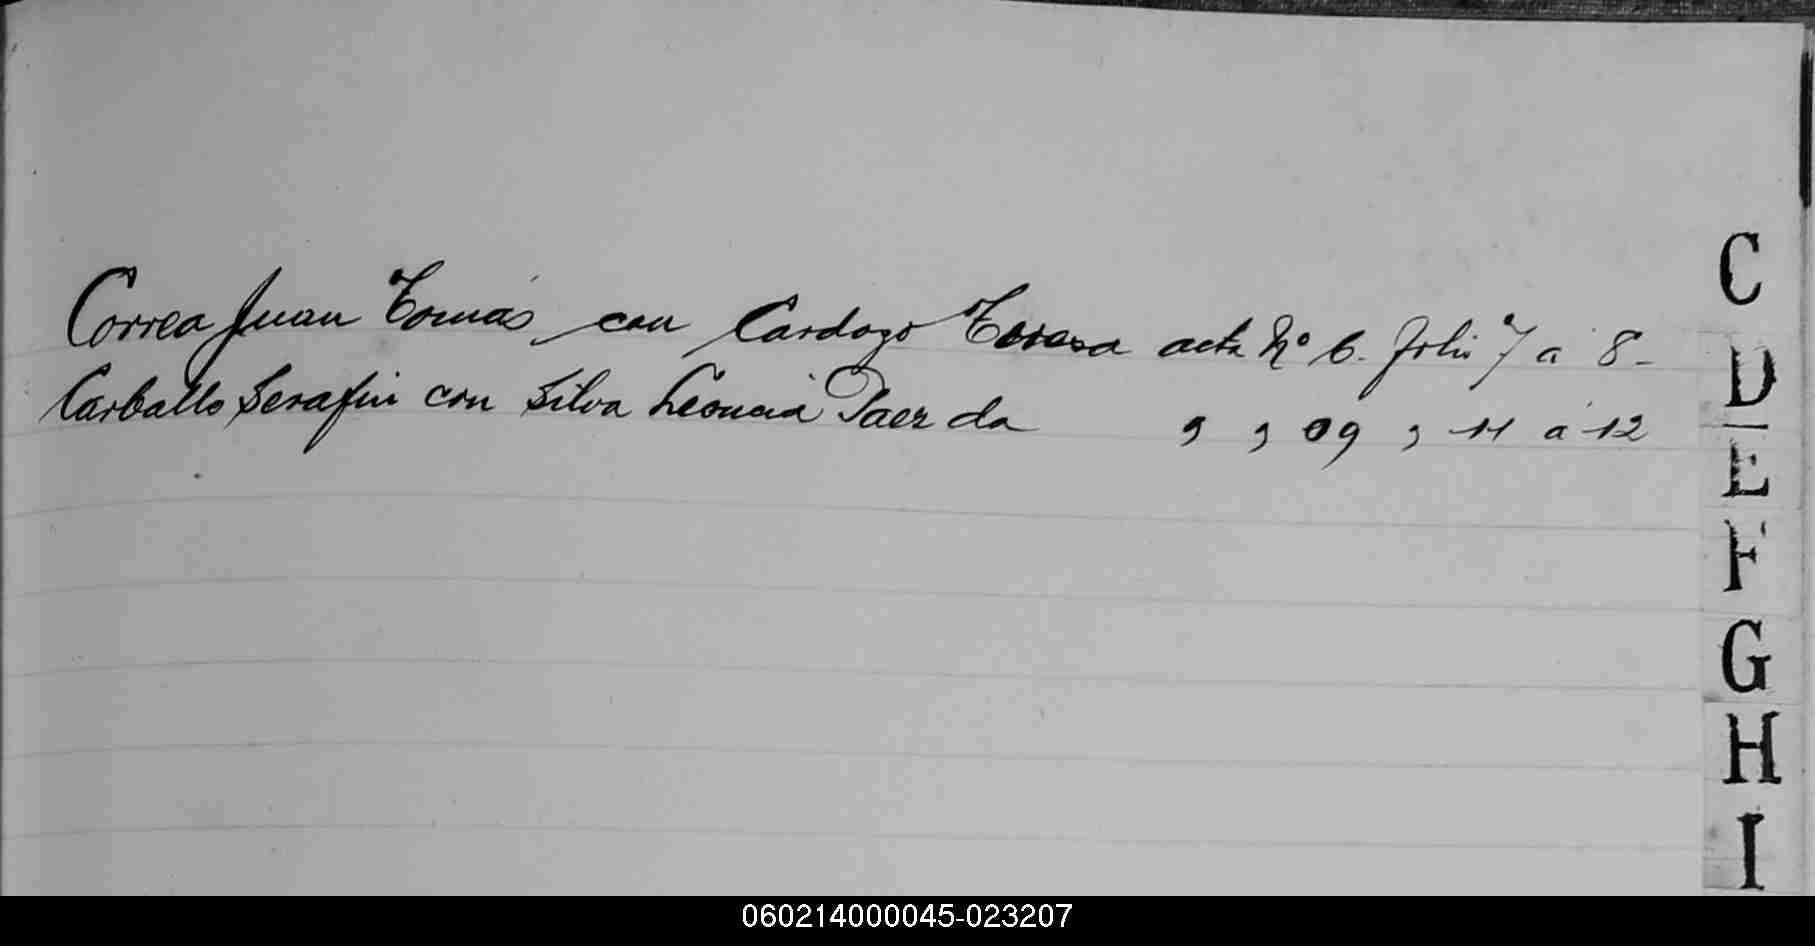 Correa Juan Tomás con Cardozo Teresa acta Nº 6. folio 7 a 8-
Carballo Serafin con Silva Leoncia Paez da " " 09 " 11 a 12
C
D
E
F
G
H
I
060214000045-023207